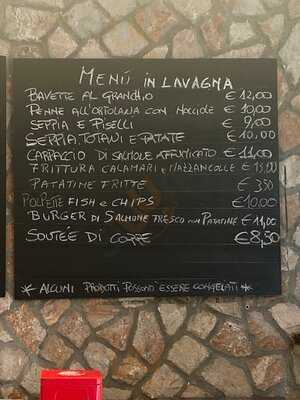 MENÙ IN LAVAGNA
BAVETTE AL GRANCHIO €12,00
PENNE ALL'ORTOLANA CON NOCCIOLE €10,00
SEPPIA E PISELLI €9,00
SEPPIA, TOTANI E PATATE €10,00
CARPACCIO DI SALMONE AFFUMICATO €11,00
FRITTURA CALAMARI E MAZZANCOLLE €13,00
PATATINE FRITTE €3,50
POLPETTE FISH e CHIPS €10,00
BURGER DI SALMONE FRESCO CON PATATINE €11,00
SOUTÉE DI COZZE €8,50
* ALCUNI PRODOTTI POSSONO ESSERE CONGELATI *